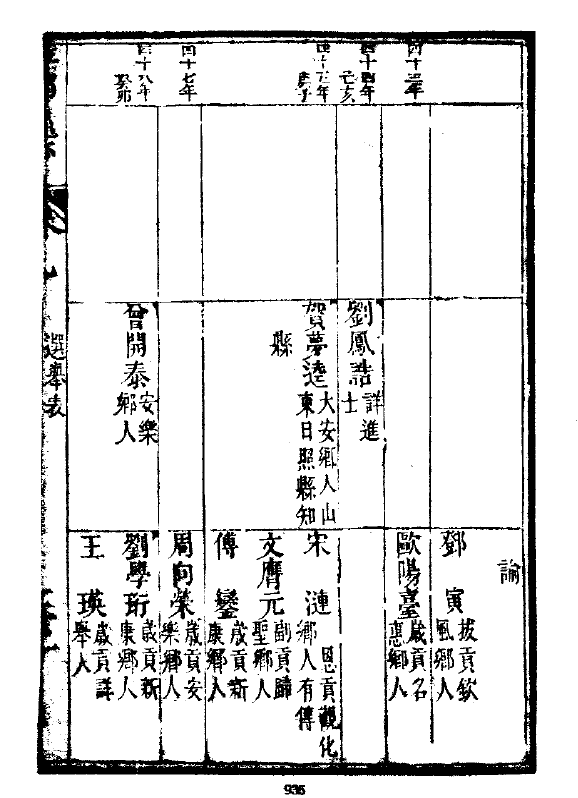 四十二年
四十四年
己亥
四十五年
庚子
四十七年
四十八年
癸卯
劉鳳誥 詳進士
賀夢逵 大安鄉人山東日照縣知縣
曾開泰 安樂鄉人
諭
鄧寅 拔貢欽風鄉人
歐陽臺 歲貢名惠鄉人
宋漣 恩貢觀化鄉人有傳
文膺元 副貢歸聖鄉人
傅鑾 歲貢新康鄉人
周向榮 歲貢安樂鄉人
劉學珩 歲貢新康鄉人
王瑛 歲貢詳舉人
選舉表
936